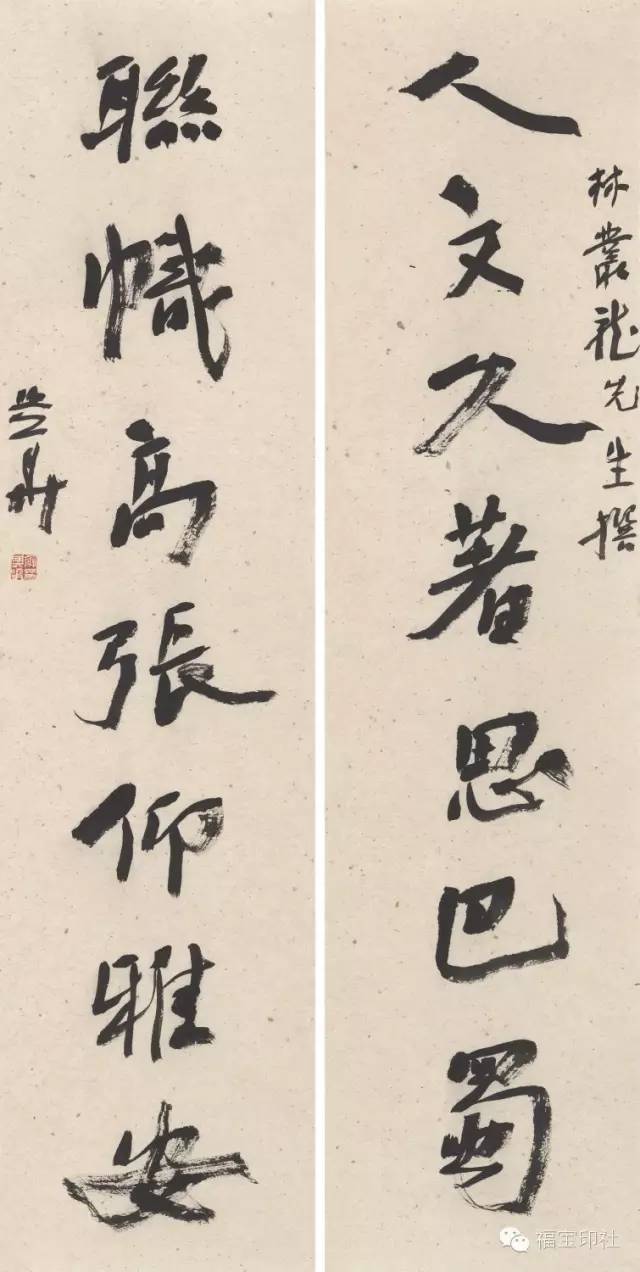 林叢龍先生撰
人文久著思巴蜀
聯幟高張仰雅安
福宝印社